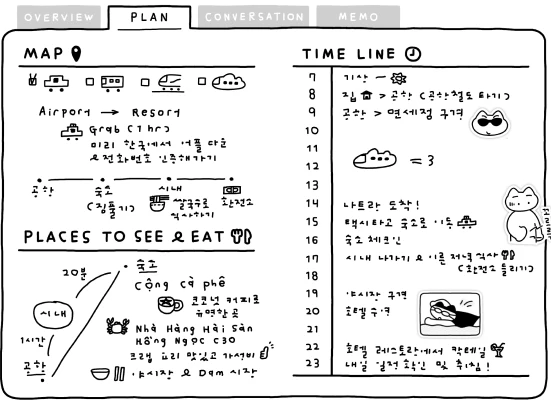 OVERVIEW
PLAN
CONVERSATION
MEMO
MAP
Airport → Resort
Grab (1hr)
미리 한국에서 어플 다운
& 전화번호 인증해가기
공항
숙소
(짐풀기)
시내
쌀국수로
식사하기
환전소
PLACES TO SEE & EAT
20분
숙소
시내
1시간
공항
Cộng cà phê
코코넛 커피로
유명한 곳
Nhà Hàng Hải Sản
Hồng Ngọc C30
크랩 요리 맛있고 가성비
야시장 & Dam 시장
TIME LINE
7 기상 –
8 집 > 공항 (공항철도 타기)
9 공항 > 면세점 구경
10
11
12 = 3
13
14 나트랑 도착!
15 택시타고 숙소로 이동
16 숙소 체크인
17 시내 나가기 & 이른 저녁 식사
18 (환전소 들리기)
19 야시장 구경
20 호텔 수영
21
22 호텔 레스토랑에서 칵테일
23 내일 일정 확인 및 취침!